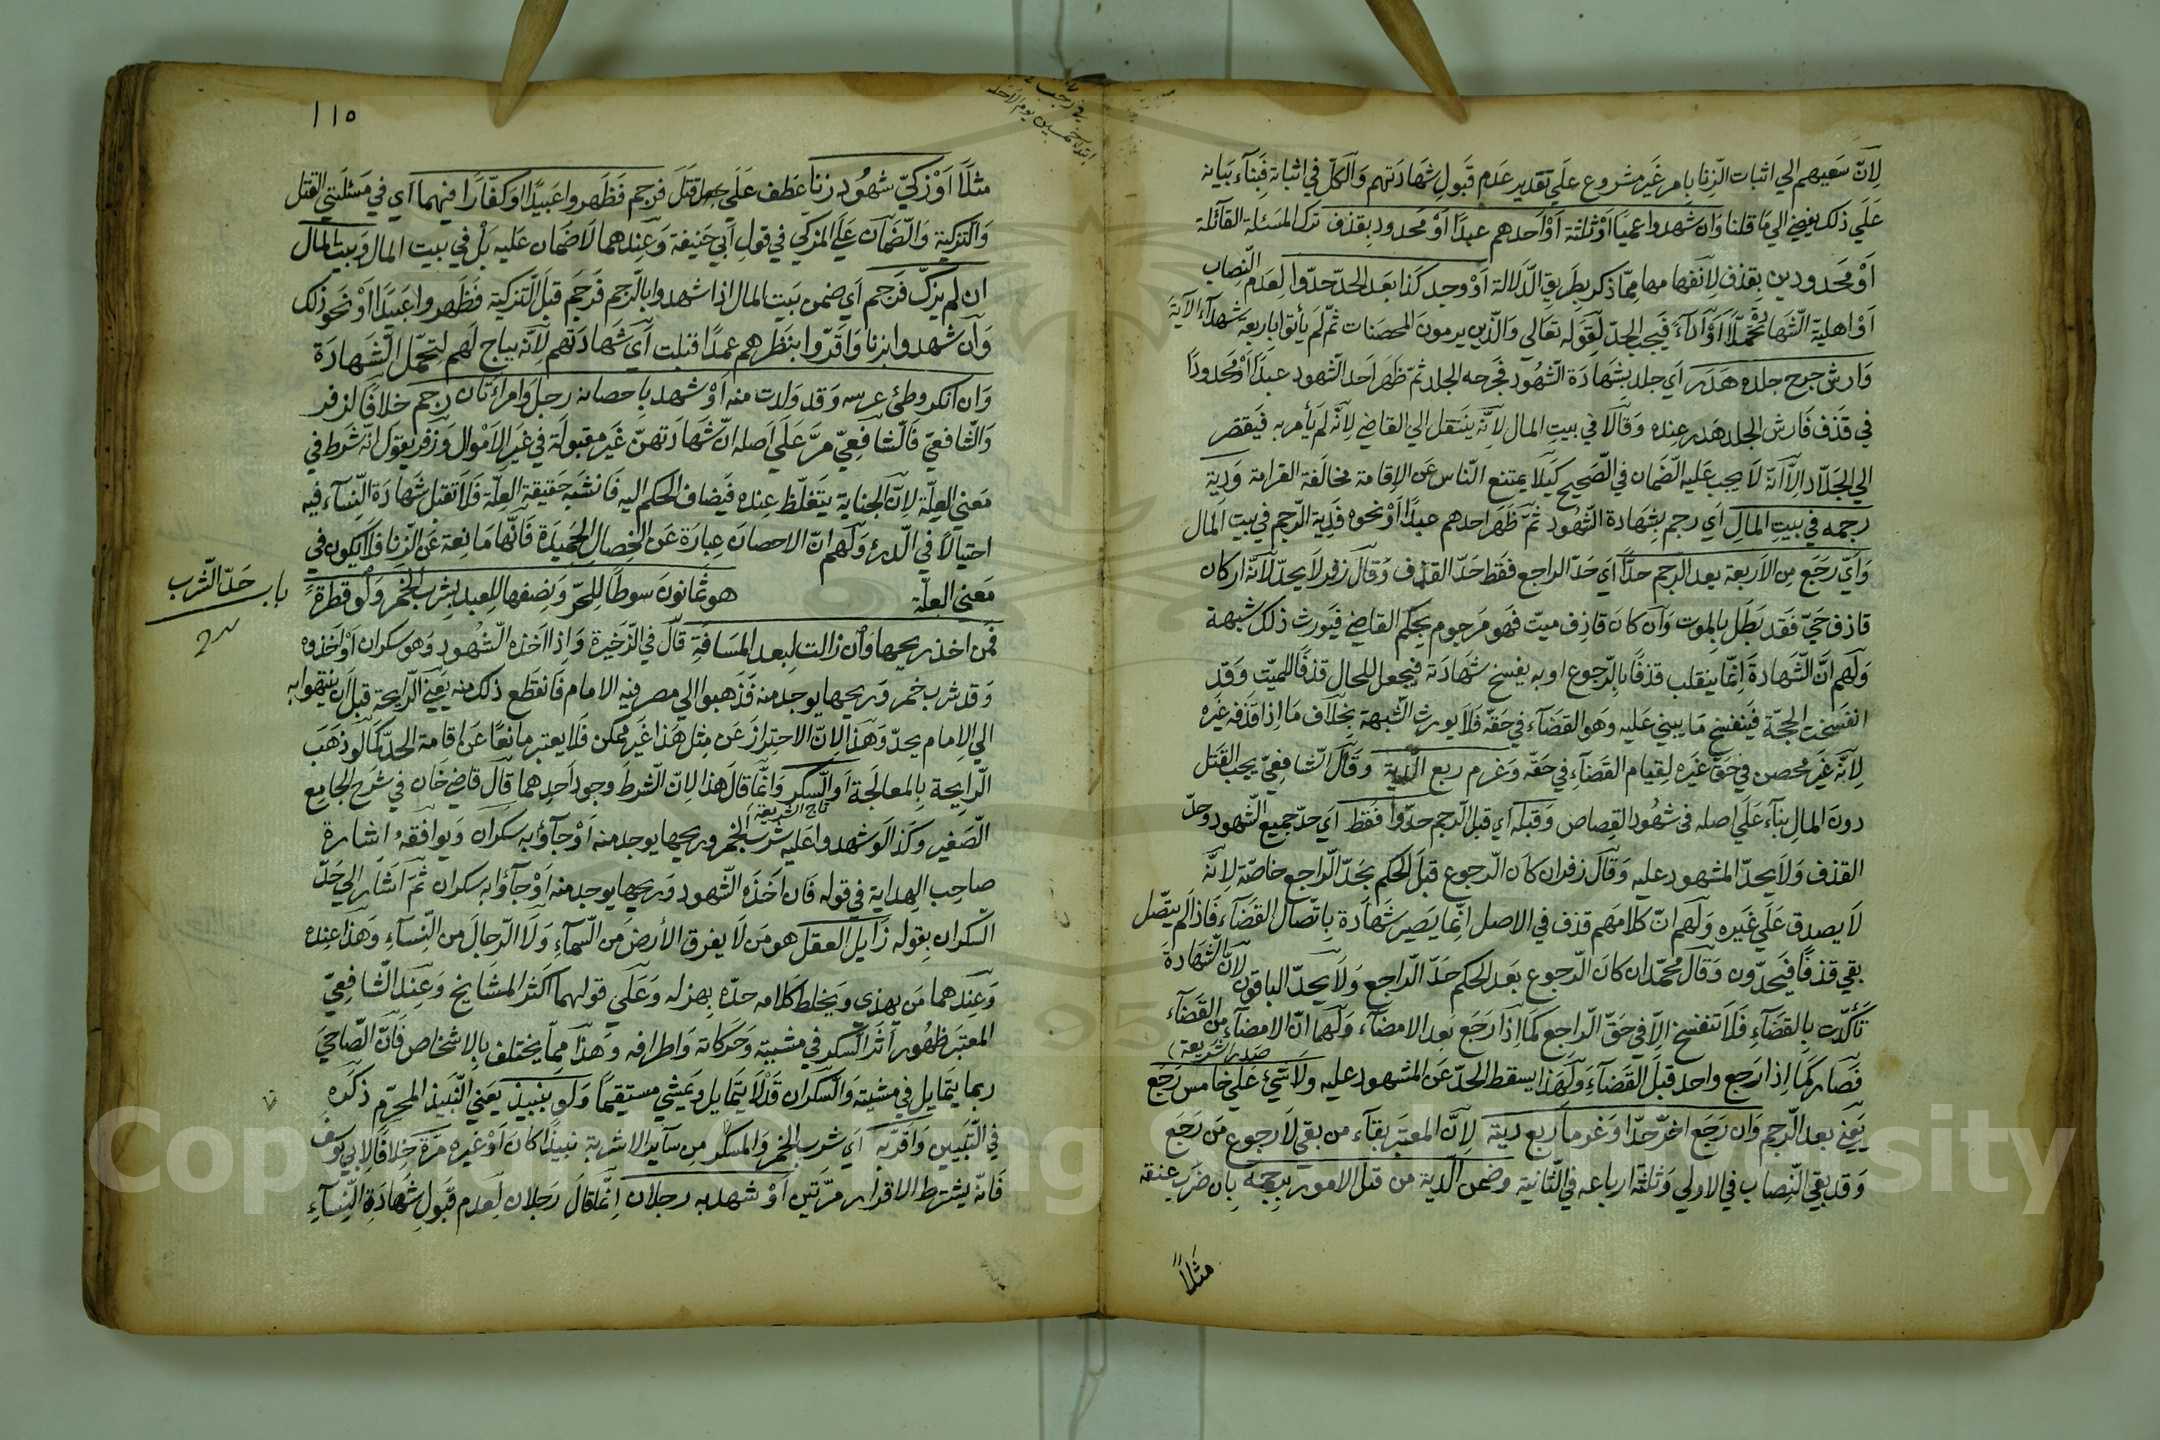 لانّ سعيهم الي اثبات الزنا بامر غير مشروع علي تقدير عدم قبول شهادتهم والكل في اثباته فبناء بيانه
علي ذلك يفضي الي ما قلنا وان شهدوا عميا او ثلثة او احدهم عبدا او محدود بقذف ترك المسئلة القائلة
او محدودين بقذف لانفهامها مما ذكر بطريق الدلالة او وجد كذا بعد الحدّ حدّوا لعدم النصاب
او اهلية الشهادة تحمّلا او اداء فيجب الحدّ لقوله تعالى والذين يرمون المحصنات ثم لم يأتوا باربعة شهداء الآية
وارش جرح جلده هدر اي جلد بشهادة الشهود فجرحه الجلد ثم ظهر احد الشهود عبدا او محدودا
في قذف فارش الجلد هدر عنده وقالا في بيت المال لانه ينتقل الي القاضي لانه لم يأمر به فيقتصر
الي الجلاد الا انه لا يجب عليه الضمان في الصحيح كيلا يمتنع الناس عن الاقامة مخالفة الغرامة ودية
رجمه في بيت المال اي رجم بشهادة الشهود ثم ظهر احدهم عبدا او نحوه فدية الرجم في بيت المال
وايّ رجع من الاربعة بعد الرجم حدّا اي حدّ الراجع فقط حدّ القذف وقال زفر لا يحدّ لانه ان كان
قاذف حيّ فقد بطل بالموت وان كان قاذف ميت فهو مرجوم بحكم القاضي فيورث ذلك شبهة
ولهم ان الشهادة انما ينقلب قذفا بالرجوع او به يفسخ شهادته فيجعل للحال قذفا للميت وقد
انفسخت الحجة فينفسخ ما يبني عليه وهو القضاء في حقه فلا يورث الشبهة بخلاف ما اذا قذفه غيره
لانه غير محصن في حق غيره لقيام القضاء في حقه وغرم ربع الدية وقال الشافعي يجب القتل
دون المال بناء على اصله في شهود القصاص وقبله اي قبل الرجم حدّوا فقط اي حدّ جميع الشهود وحدّ
القذف ولا يحدّ المشهود عليه وقال زفر ان كان الرجوع قبل الحكم بحدّ الراجع خاصّة لانه
لا يصدق علي غيره ولهم ان كلامهم قذف في الاصل انما يصير شهادة باتصال القضاء فاذا لم يتصل
بقي قذفا فيحدّون وقال محمّد ان كان الرجوع بعد الحكم حدّ الراجع ولا يحدّ الباقون لانّ الشهادة
تأكّدت بالقضاء فلا تنفسخ الا في حق الراجع كما اذا رجع بعد الامضاء ولهما ان الامضاء من القضاء
صدر الشريعة
فصار كما اذا رجع واحد قبل القضاء ولهذا يسقط الحدّ عن المشهود عليه ولا شيء علي خامس رجع
يعني بعد الرجم وان رجع اخر حدّا وغرما ربع دية لان المعتبر بقاء من بقي لا رجوع من رجع
وقد بقي النصاب في الاولي وثلثة ارباعه في الثانية وضمن الدية من قتل الامور برجمه بان ضرب عنقه
مثلاً
١١٥
مثلا او زكّي شهود زنا عطف علي قتل فرجم فظهروا عبيدا او كفارا فيهما اي في مسئلتي القتل
والتزكية والضمان علي المزكي في قول ابي حنيفة وعندهما لا ضمان عليه بل في بيت المال وبيت المال
ان لم يزكّ فرجم اي ضمن بيت المال اذا شهدوا بالرجم فرجم قبل التزكية فظهروا عبيدا او نحو ذلك
وان شهدوا بزنا واقرّوا بنظرهم عمدا قبلت اي شهادتهم لانه يباح لهم لتحمّل الشهادة
وان انكر وطئ عرسه وقد ولدت منه او شهد باحصانه رجل وامرأتان رجم خلافا لزفر
والشافعيّ فالشافعيّ مرّ علي اصله انّ شهادتهنّ غير مقبولة في غير الاموال وزفر يقول انه شرط في
معني العلّة لانّ الجناية يتغلّظ عنده فيضاف الحكم اليه فاشبه حقيقة العلّة فلا تقبل شهادة النساء فيه
احتيالا في الدرئ ولهم انّ الاحصان عبارة عن الخصال الحميدة فانها مانعة عن الزنا فلا يكون في
معني العلّة هو ثمانون سوطا للحرّ ونصفها للعبد بشرب الخمر ولو قطرة
باب حدّ الشرب
فمن اخذ بريحها وان زالت لبعد المسافة قال في الذخيرة واذا اخذه الشهود وهو سكران او اخذوه
وقد شرب خمر وريحها يوجد منه فذهبوا الي مصر فيه الامام فانقطع ذلك منه يعني الرايحة قبل ان ينتهوا به
الي الامام يحدّ وهذا لانّ الاحتراز عن مثل هذا غير ممكن فلا يعتبر مانعا عن اقامة الحدّ كما لو ذهب
الرايحة بالمعالجة او السكر وانما قال هذا لانّ الشرط وجود احدهما قال قاضي خان في شرح الجامع
تاج الشريعة
الصغير وكذا لو شهدوا عليه شرب الخمر وريحها يوجد منه او جاؤا به سكران ويوافقه اشارة
صاحب الهداية في قوله فان اخذه الشهود وريحها يوجد منه او جاؤا به سكران ثم اشار الي حدّ
السكران بقوله زايل العقل هو من لا يفرق الارض من السماء ولا الرجال من النساء وهذا عنده
وعندهما من يهذي ويخلط كلامه حدّه بهزله وعلي قولهما اكثر المشايخ وعند الشافعيّ
المعتبر ظهور اثر السكر في مشيته وحركاته واطرافه وهذا مما يختلف بالاشخاص فانّ الصاحي
ربما يتمايل في مشيته والسكران قد لا يتمايل ويمشي مستقيما ولو بنبيذ يعني النبيذ المحرّم ذكره
في التبيين واقرّ به اي شرب الخمر والمسكر من ساير الاشربة نبيذا كان او غيره مرّة خلافا لابي يوسف
فانه يشترط الاقرار مرّتين او شهد به رجلان انما قال رجلان لعدم قبول شهادة النساء